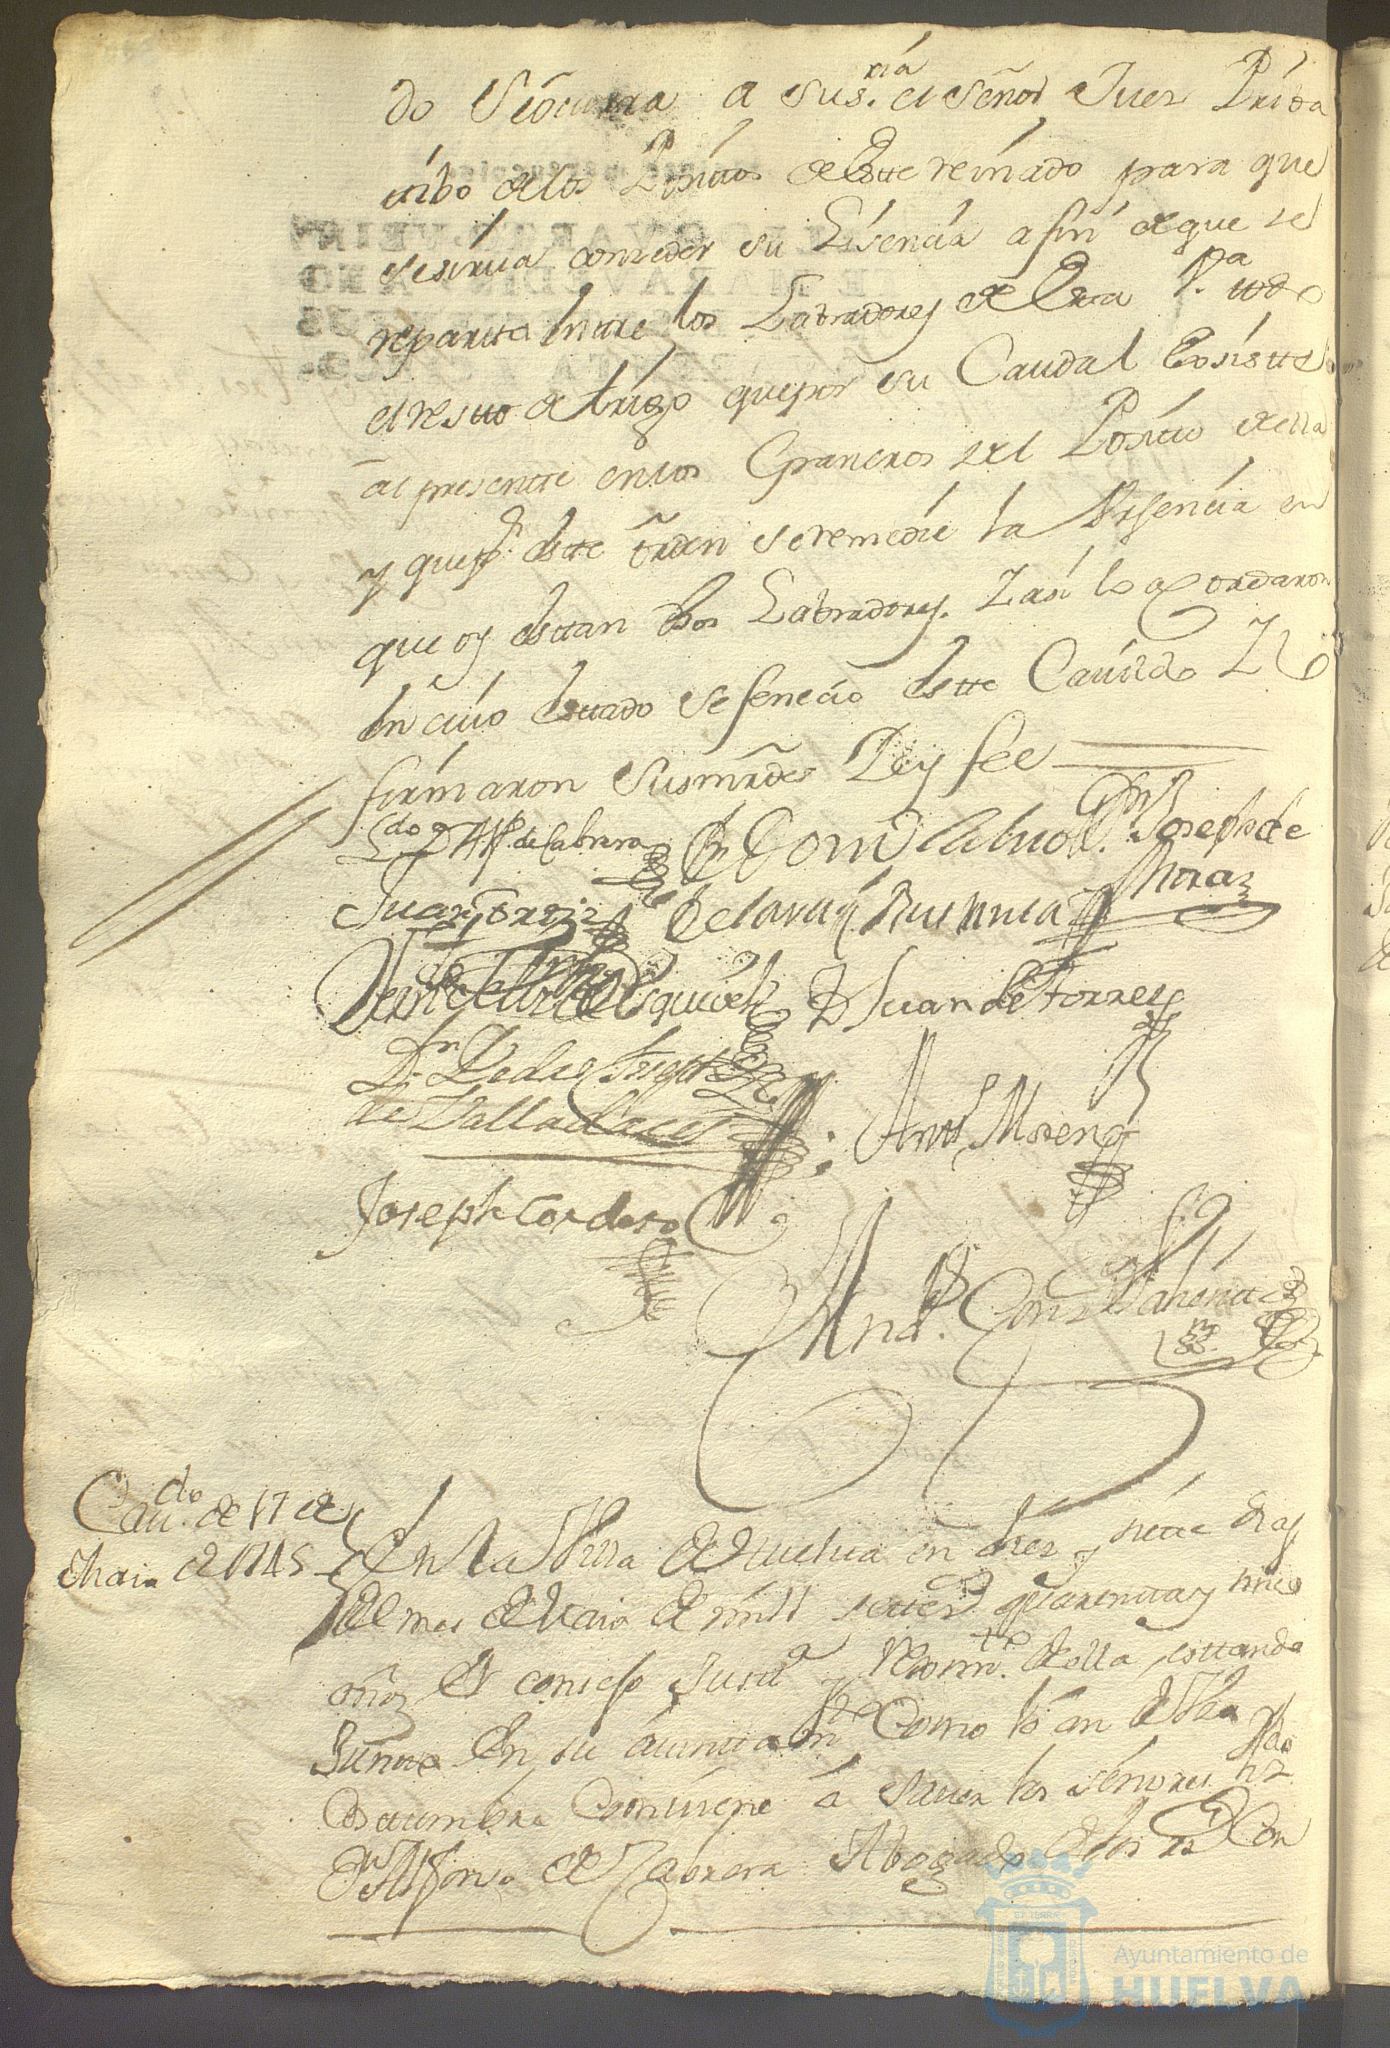 do Seocurra a sus.ría el señor Juez Priba
tibo de los Positos de Este reinado para que
se sirva conzeder su Lisencia a fin de que se
reparta entre los Labradores de Esta V.a todo
el resto de trigo que por su Caudal Existte
al presentte en los Graneros del Posito della
y que p.r este orden se remedie la Vrgencia en
que oy esttan dhos Labradores. Y asi lo acordaron
En cuio Esttado se fenecio estte Cavildo Y lo
firmaron sus mrdes Doy fee
L.do D. Alf.o de Cabrera
Joseph de
Mora
Juan
D Juan de Torres
Esquivel
D.n Pedro Joseph
de Valladares
Antt.o Moreno
Joseph Cordero
And.s
Cav.do de 17 de
Maio de 1745
En la Villa de Huelua en diez y siete dias
del mes de Maio de mill settez.s quarenta y cinco
años El consejo Justt.a y Reximi.to della esttando
Junto En su aiunttam.to Como lo an de Vso y
Costumbre Combiene á Sauer los señores Lizdo
D.n Alfonso de Cabrera Abogado de los R.s Con
Ayuntamiento de
HUELVA